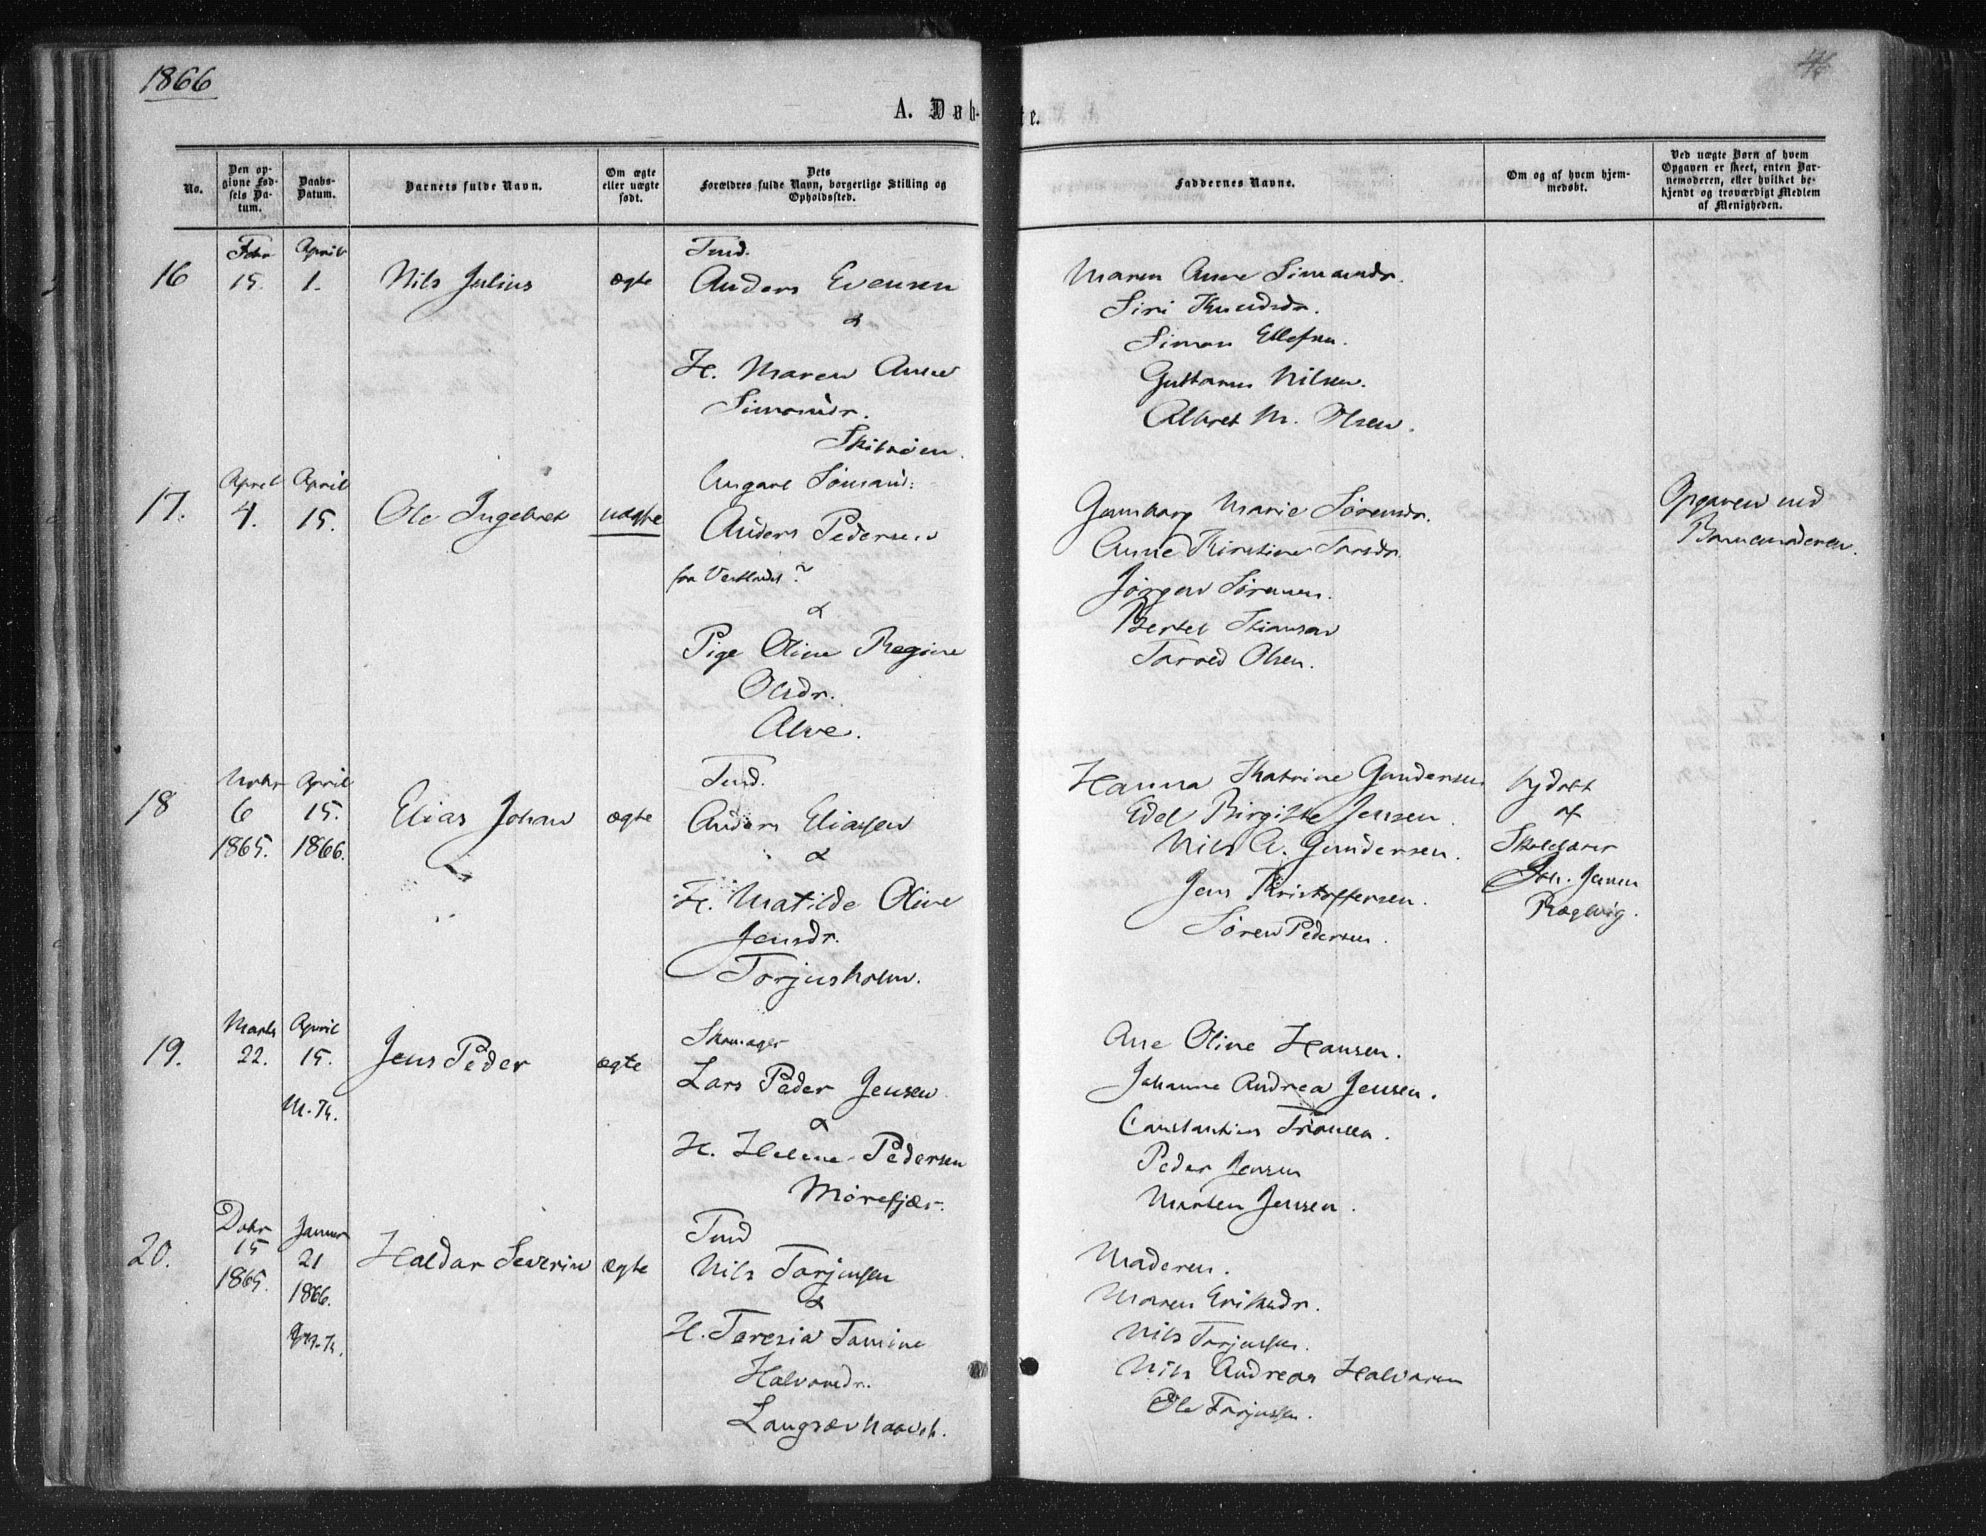 1866
A. Døb-
te.
No.
Den op-
givne Fød-
sels Da-
tum.
Daabs-
Datum.
Barnets fulde Navn.
Om ægte
eller uægte
født.
Dets
Forældres fulde Navn, borgerlige Stilling og
Opholdssted.
Faddernes Navne.
Om og af hvem hjem-
medøbt.
Ved uægte Børn af hvem
Opgaven er skeet, enten Bar-
nemoderen, eller hvilket be-
kjendt og troværdigt Medlem
af Menigheden.
16
Febr
15.
April
1.
Nils Julius
ægte
Tmd.
Anders Evensen
&
H. Maren Anne
Simonsdr.
Skilsøen.
Maren Anne Simonsdr.
Siri Knudsdr.
Simon Ellefsen.
Guttorm Nilsen.
Albret M. Olsen.
17.
April
4.
April
15.
Ole Ingebret
uægte
Ungarl Sømand:
Anders Pedersen
fra Vestlandet?
&
Pige Oline Regine
Olsdr.
Alve.
Gunborg Marie Sørensdr.
Anne Kirstine Larsdr.
Jørgen Sørensen.
Bertel Stiansen
Tarved Olsen.
Opgaven ved
Barnemoderen.
18
Novbr
6
1865.
April
15.
1866.
Elias Johan
ægte
Tmd.
Anders Eliassen
&
H. Matilde Oline
Jensdr.
Torjusholm.
Hanna Katrine Gundersen
Edel Birgitte Jensen.
Nils A. Gundersen.
Jens Kristoffersen.
Søren Pedersen.
hjdøbt
af
Skolelærer
Joh. Jensen
Rægevig.
19.
Marts
22.
April
15.
M. Tr.
Jens Peder
ægte
Skomager
Lars Peder Jensen
&
H. Helene Pedersen
Mørefjær.
Ane Oline Hansen.
Johanne Andrea Jensen.
Constantius
Peder Jensen
Morten Jensen.
20.
Dcbr
15
1865.
Januar
21
1866.
Tr.
Haldor Severin
ægte
Tmd
Nils Torjussen
&
H. Teresia Tomine
Halvorsdr.
Langsævhaaveh.
Moderen.
Maren Eriksdr.
Nils Torjussen.
Nils Andreas Halvorsen
Ole Torjussen.